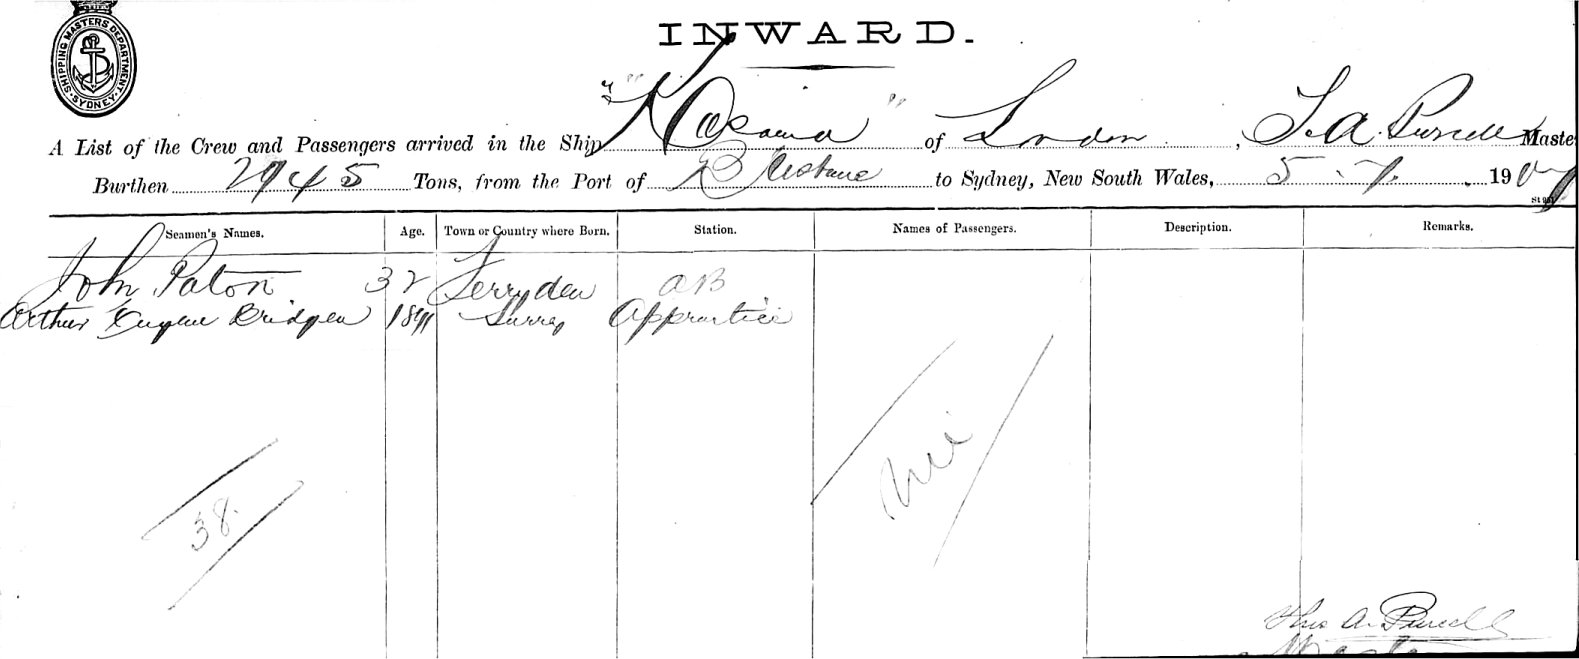 SHIPPING MASTERS DEPARTMENT. SYDNEY.
INWARD.
A List of the Crew and Passengers arrived in the Ship "Kosama" of London, T. A. Purcell Master
Burthen 2745 Tons, from the Port of Brisbane to Sydney, New South Wales, 5.7.1907
Seamen's Names. Age. Town or Country where Born. Station. Names of Passengers. Description. Remarks.
John Paton 32 Ferryden AB
Arthur Eugene Bridgen 18 Surrey Apprentice
nil
38.
Thos A. Purcell
Master